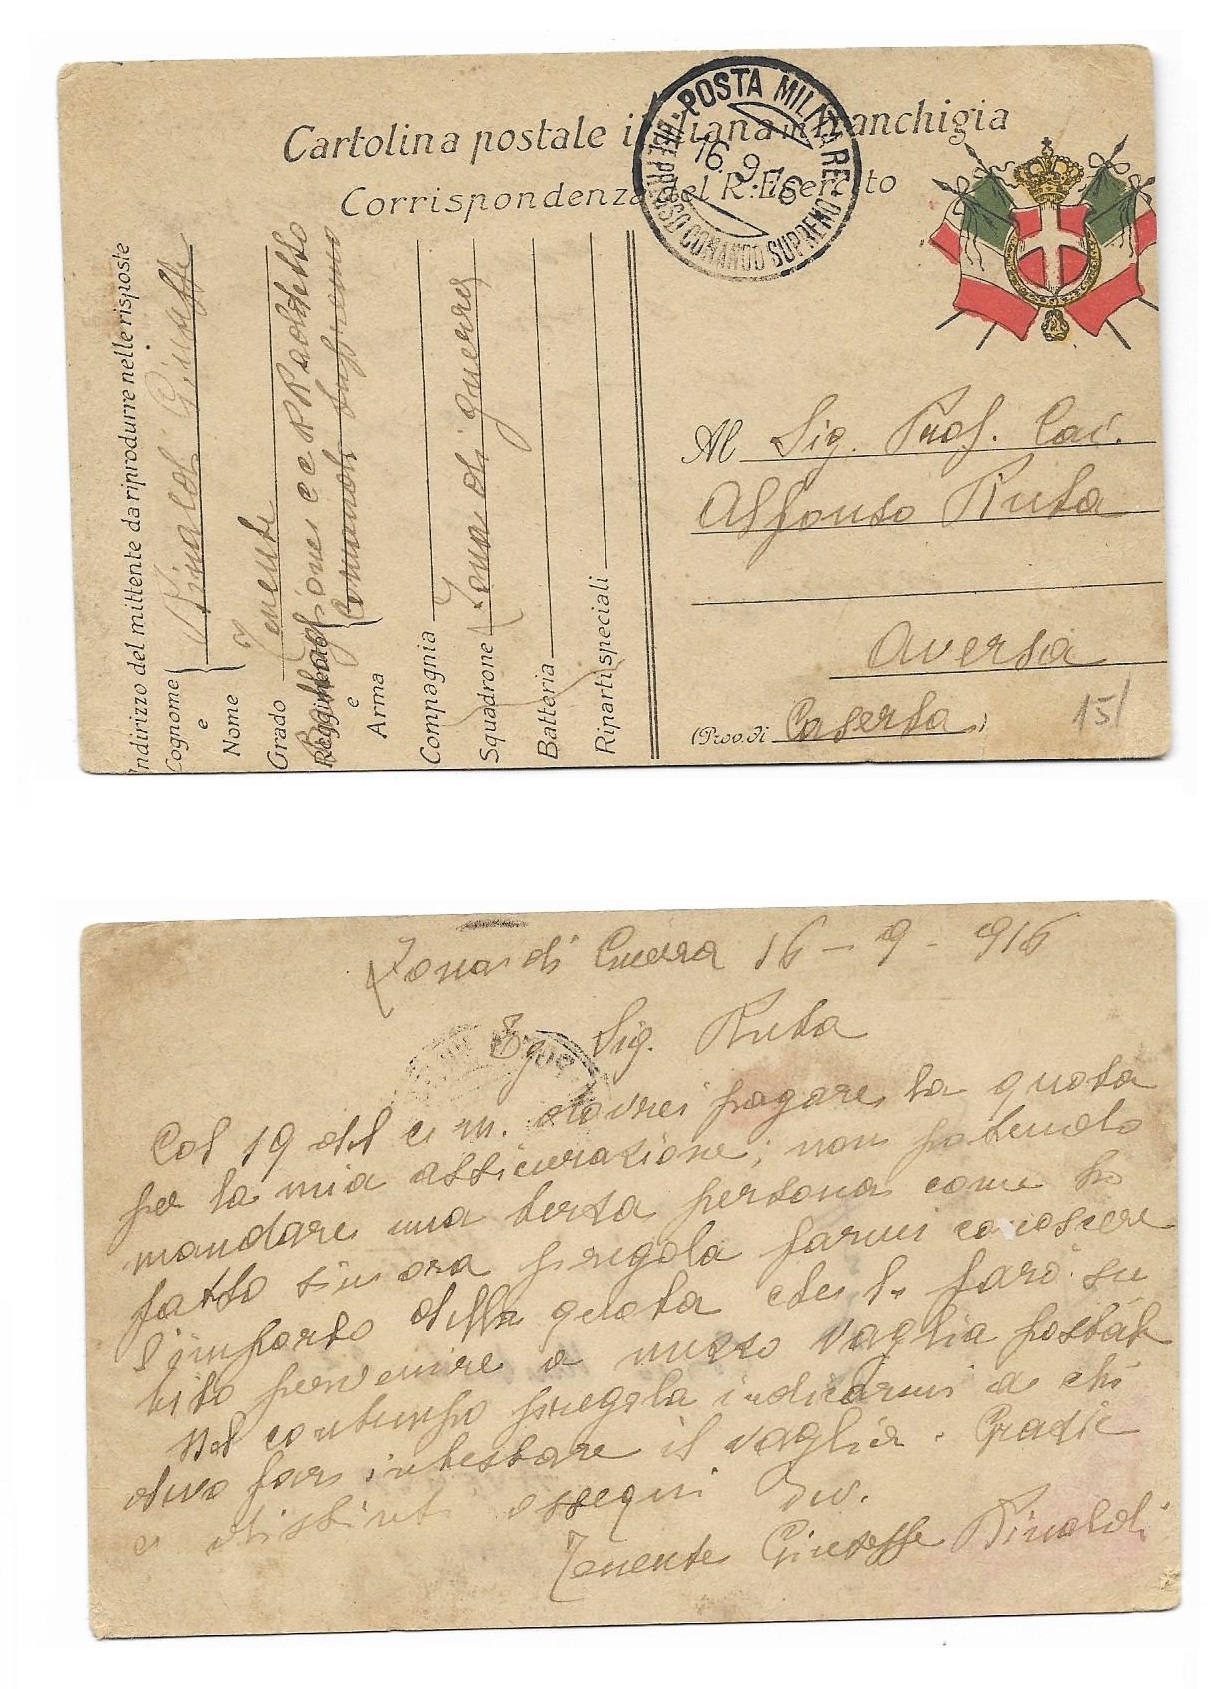 Cartolina postale italiana in franchigia
Corrispondenza del R. Esercito
POSTA MILITARE
DEL PRESSO COMANDO SUPREMO
16.9.16
Indirizzo del mittente da riprodurre nelle risposte
Cognome e Nome Rinaldi Giuseppe
Grado Tenente
Reggimento e Arma
Comando Supremo
Compagnia
Squadrone Zona di guerra
Batteria
Riparti speciali
Al Sig. Prof. Cav.
Alfonso Ruta
Aversa
(Prov. di Caserta)
15/
Zona di Guerra 16 - 9 - 916
Eg. Sig. Ruta
Col 19 del c. m. dovrei pagare la quota
per la mia assicurazione; non potendo
mandare una terza persona come ho
fatto sin ora pregola farmi conoscere
l'importo della quota che le farò su
bito pervenire a mezzo vaglia postale
Nel contempo pregola indicarmi a chi
devo far intestare il vaglia. Grazie
e distinti ossequi Dev.
Tenente Giuseppe Rinaldi